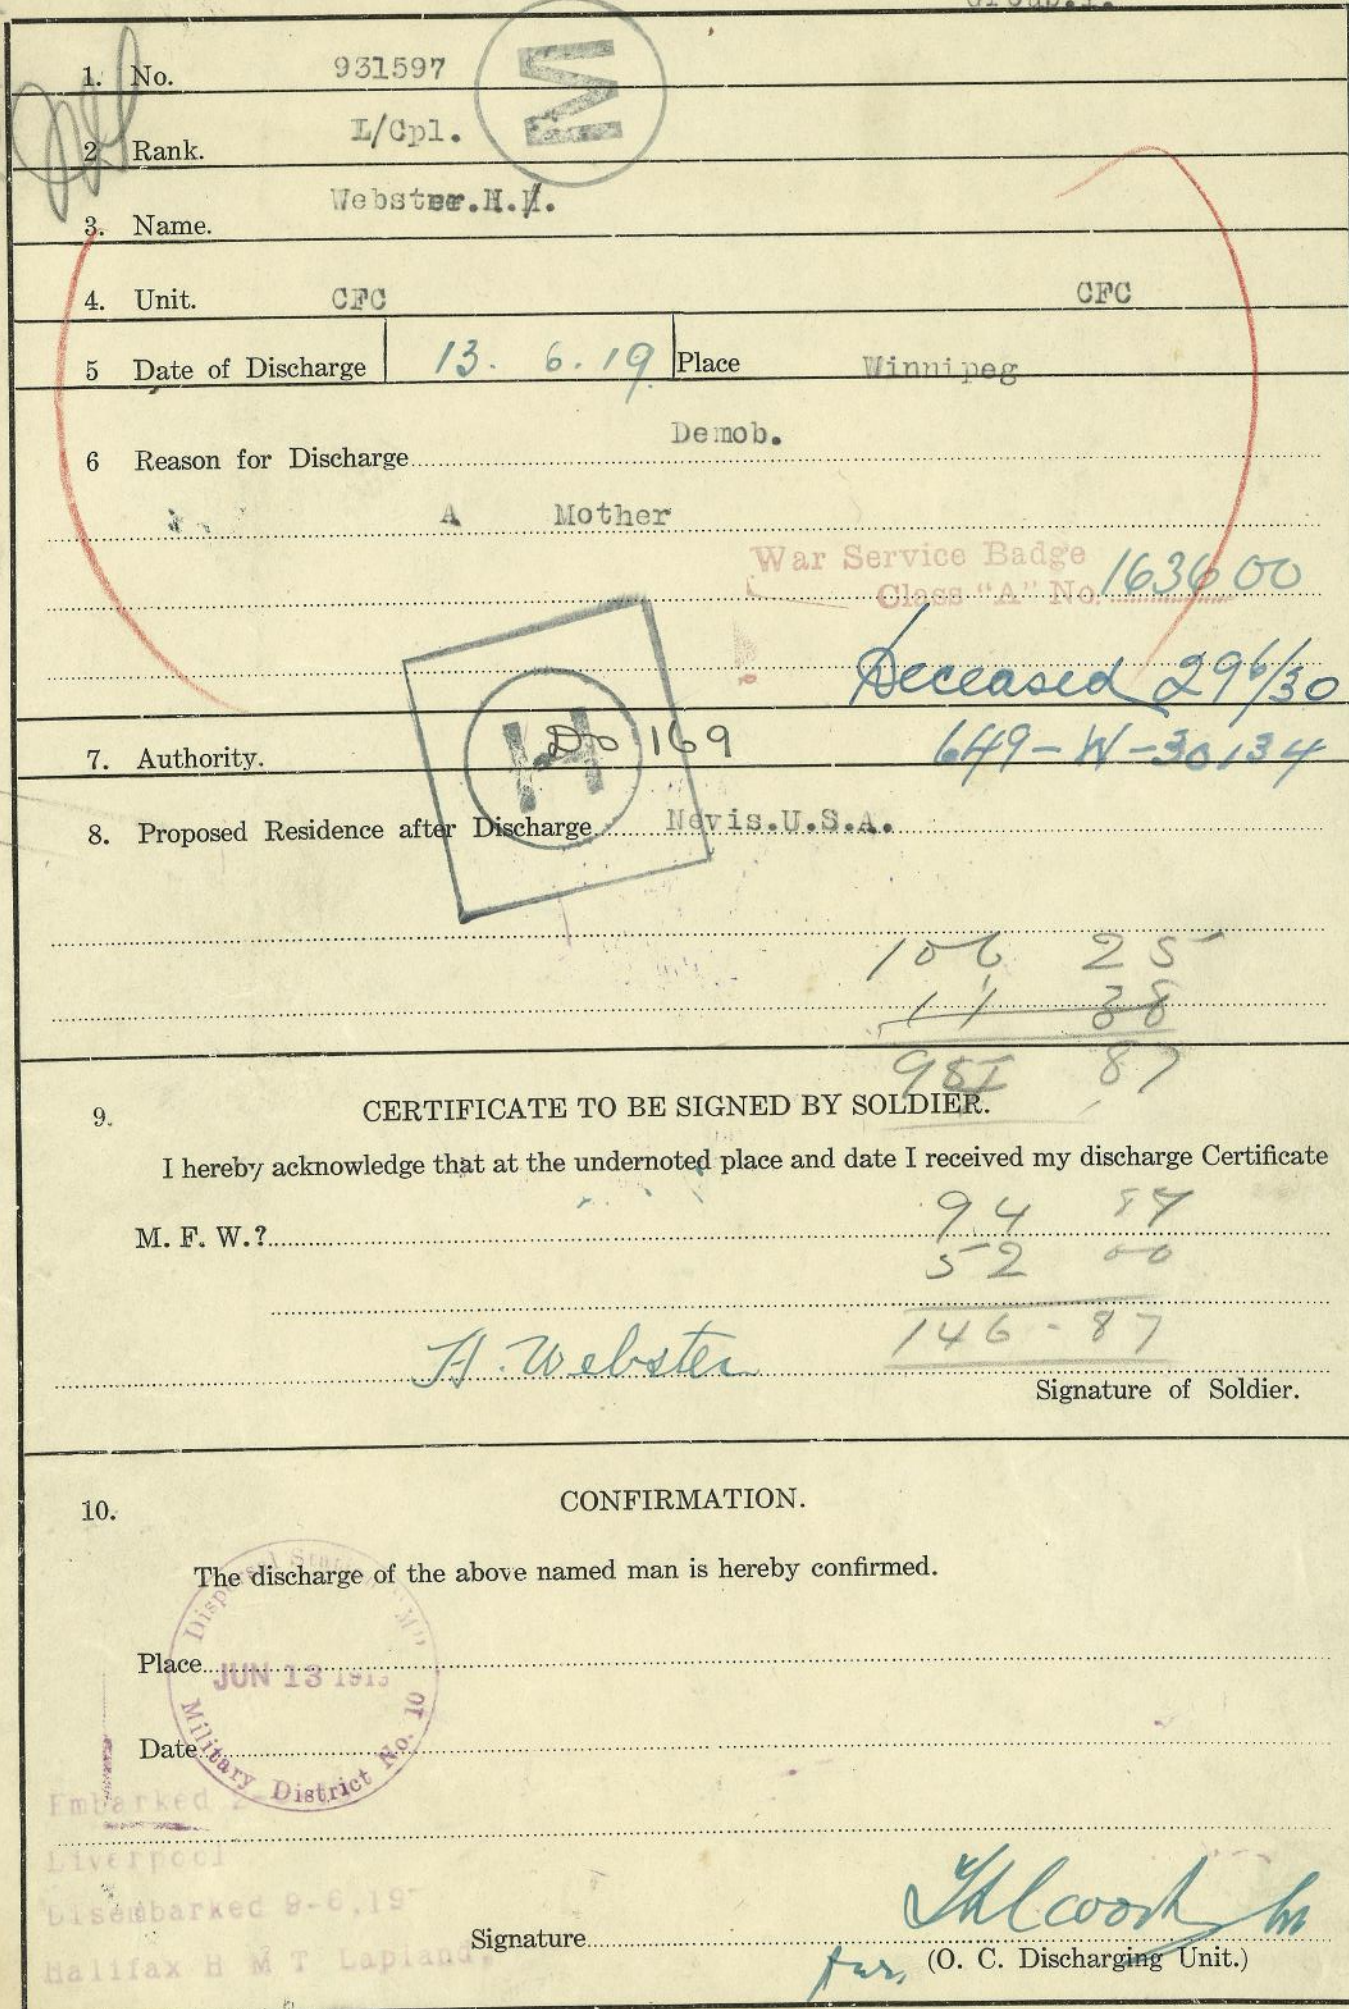 Group.1.
1. No. 931597
M
2 Rank. L/Cpl.
3. Name. Webster.H.
4. Unit. CFC CFC
5 Date of Discharge 13. 6.19 Place Winnipeg
6 Reason for Discharge Demob.
A Mother
War Service Badge
Class "A" No. 163600
Deceased 29 6/30
649-W-30134
7. Authority. DO 169
H
8. Proposed Residence after Discharge Nevis.U.S.A.
106 25
11 38
87
9. CERTIFICATE TO BE SIGNED BY SOLDIER.
I hereby acknowledge that at the undernoted place and date I received my discharge Certificate
94 87
M. F. W.?
52 00
146-87
H. Webster
Signature of Soldier.
10. CONFIRMATION.
The discharge of the above named man is hereby confirmed.
Dispersal Station "M"
Place
JUN 13 1919
Military District No. 10
Date
Embarked 2-
Liverpool
Disembarked 9-6,19
Halifax H M T Lapland.
Signature
for. (O. C. Discharging Unit.)